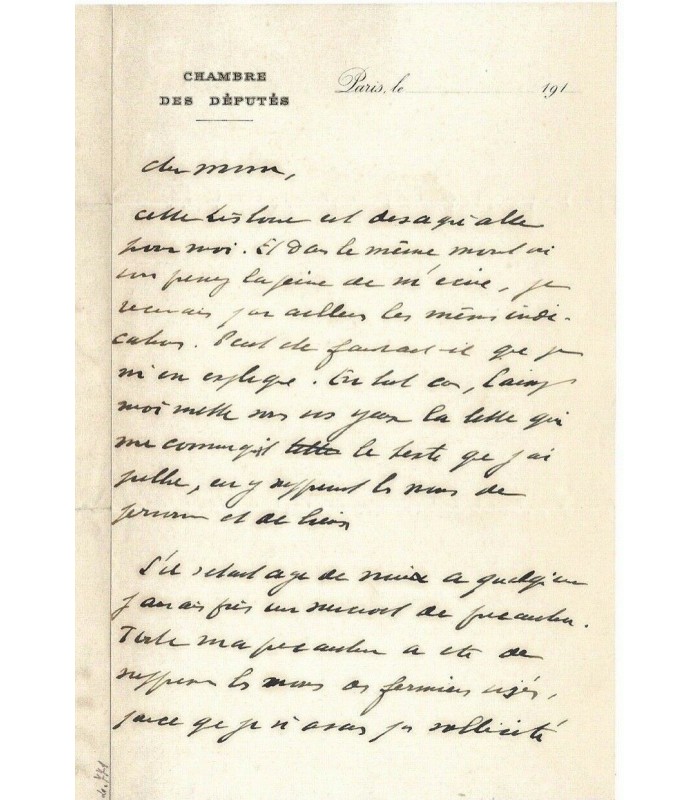 CHAMBRE
DES DÉPUTÉS
Paris, le 191
cette histoire est desagréable
pour moi. Et dans le même moment où
vous prenez la peine de m'écrire, je
recevais par ailleurs les mêmes indi-
cations. Peut être faudrait-il que je
m'en explique. En tout cas, laissez
moi mettre sous vos yeux la lettre qui
me communiquait le texte que j'ai
publié, en y supprimant les noms de
personnes et de lieux
S'il s'était agi de nuire à quelqu'un
j'aurais pris un surcroît de précaution.
Toute ma précaution a été de
supprimer les noms des fermiers visés,
parce que je n'avais pas sollicité